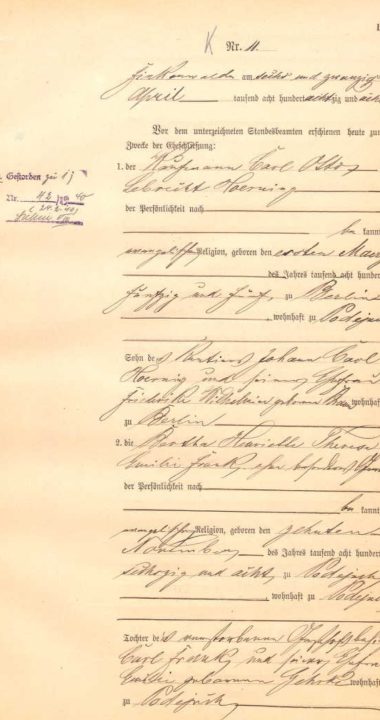 K Nr. 11.
Finkenwalde am sechs und zwanzig
April tausend acht hundert achtzig und ach
Vor dem unterzeichneten Standesbeamten erschienen heute zum
Zwecke der Eheschließung:
1. der Kaufmann Carl Otto
Hoernig
der Persönlichkeit nach
be kannt
evangelischer Religion, geboren den ersten März
des Jahres tausend acht hunder
fünfzig und fünf, zu Berlin
, wohnhaft zu Podejuch
Sohn des Rentiers Johann Carl
Hoernig und seiner Ehefrau
Friederike Wilhelmine geborene wohnhaft
zu Berlin
2. die Bertha Henriette Therese
Emilie Frank, ohne besonderes
der Persönlichkeit nach
be kannt
evangelischer Religion, geboren den zehnten
November des Jahres tausend acht hundert
sechszig und acht, zu Podejuch
, wohnhaft zu Podeju
Tochter des verstorbenen
Carl Frank und seiner Ehefrau
Emilie geborenen wohnhaft
zu Podejuch
Gestorben zu
Nr. 42 40